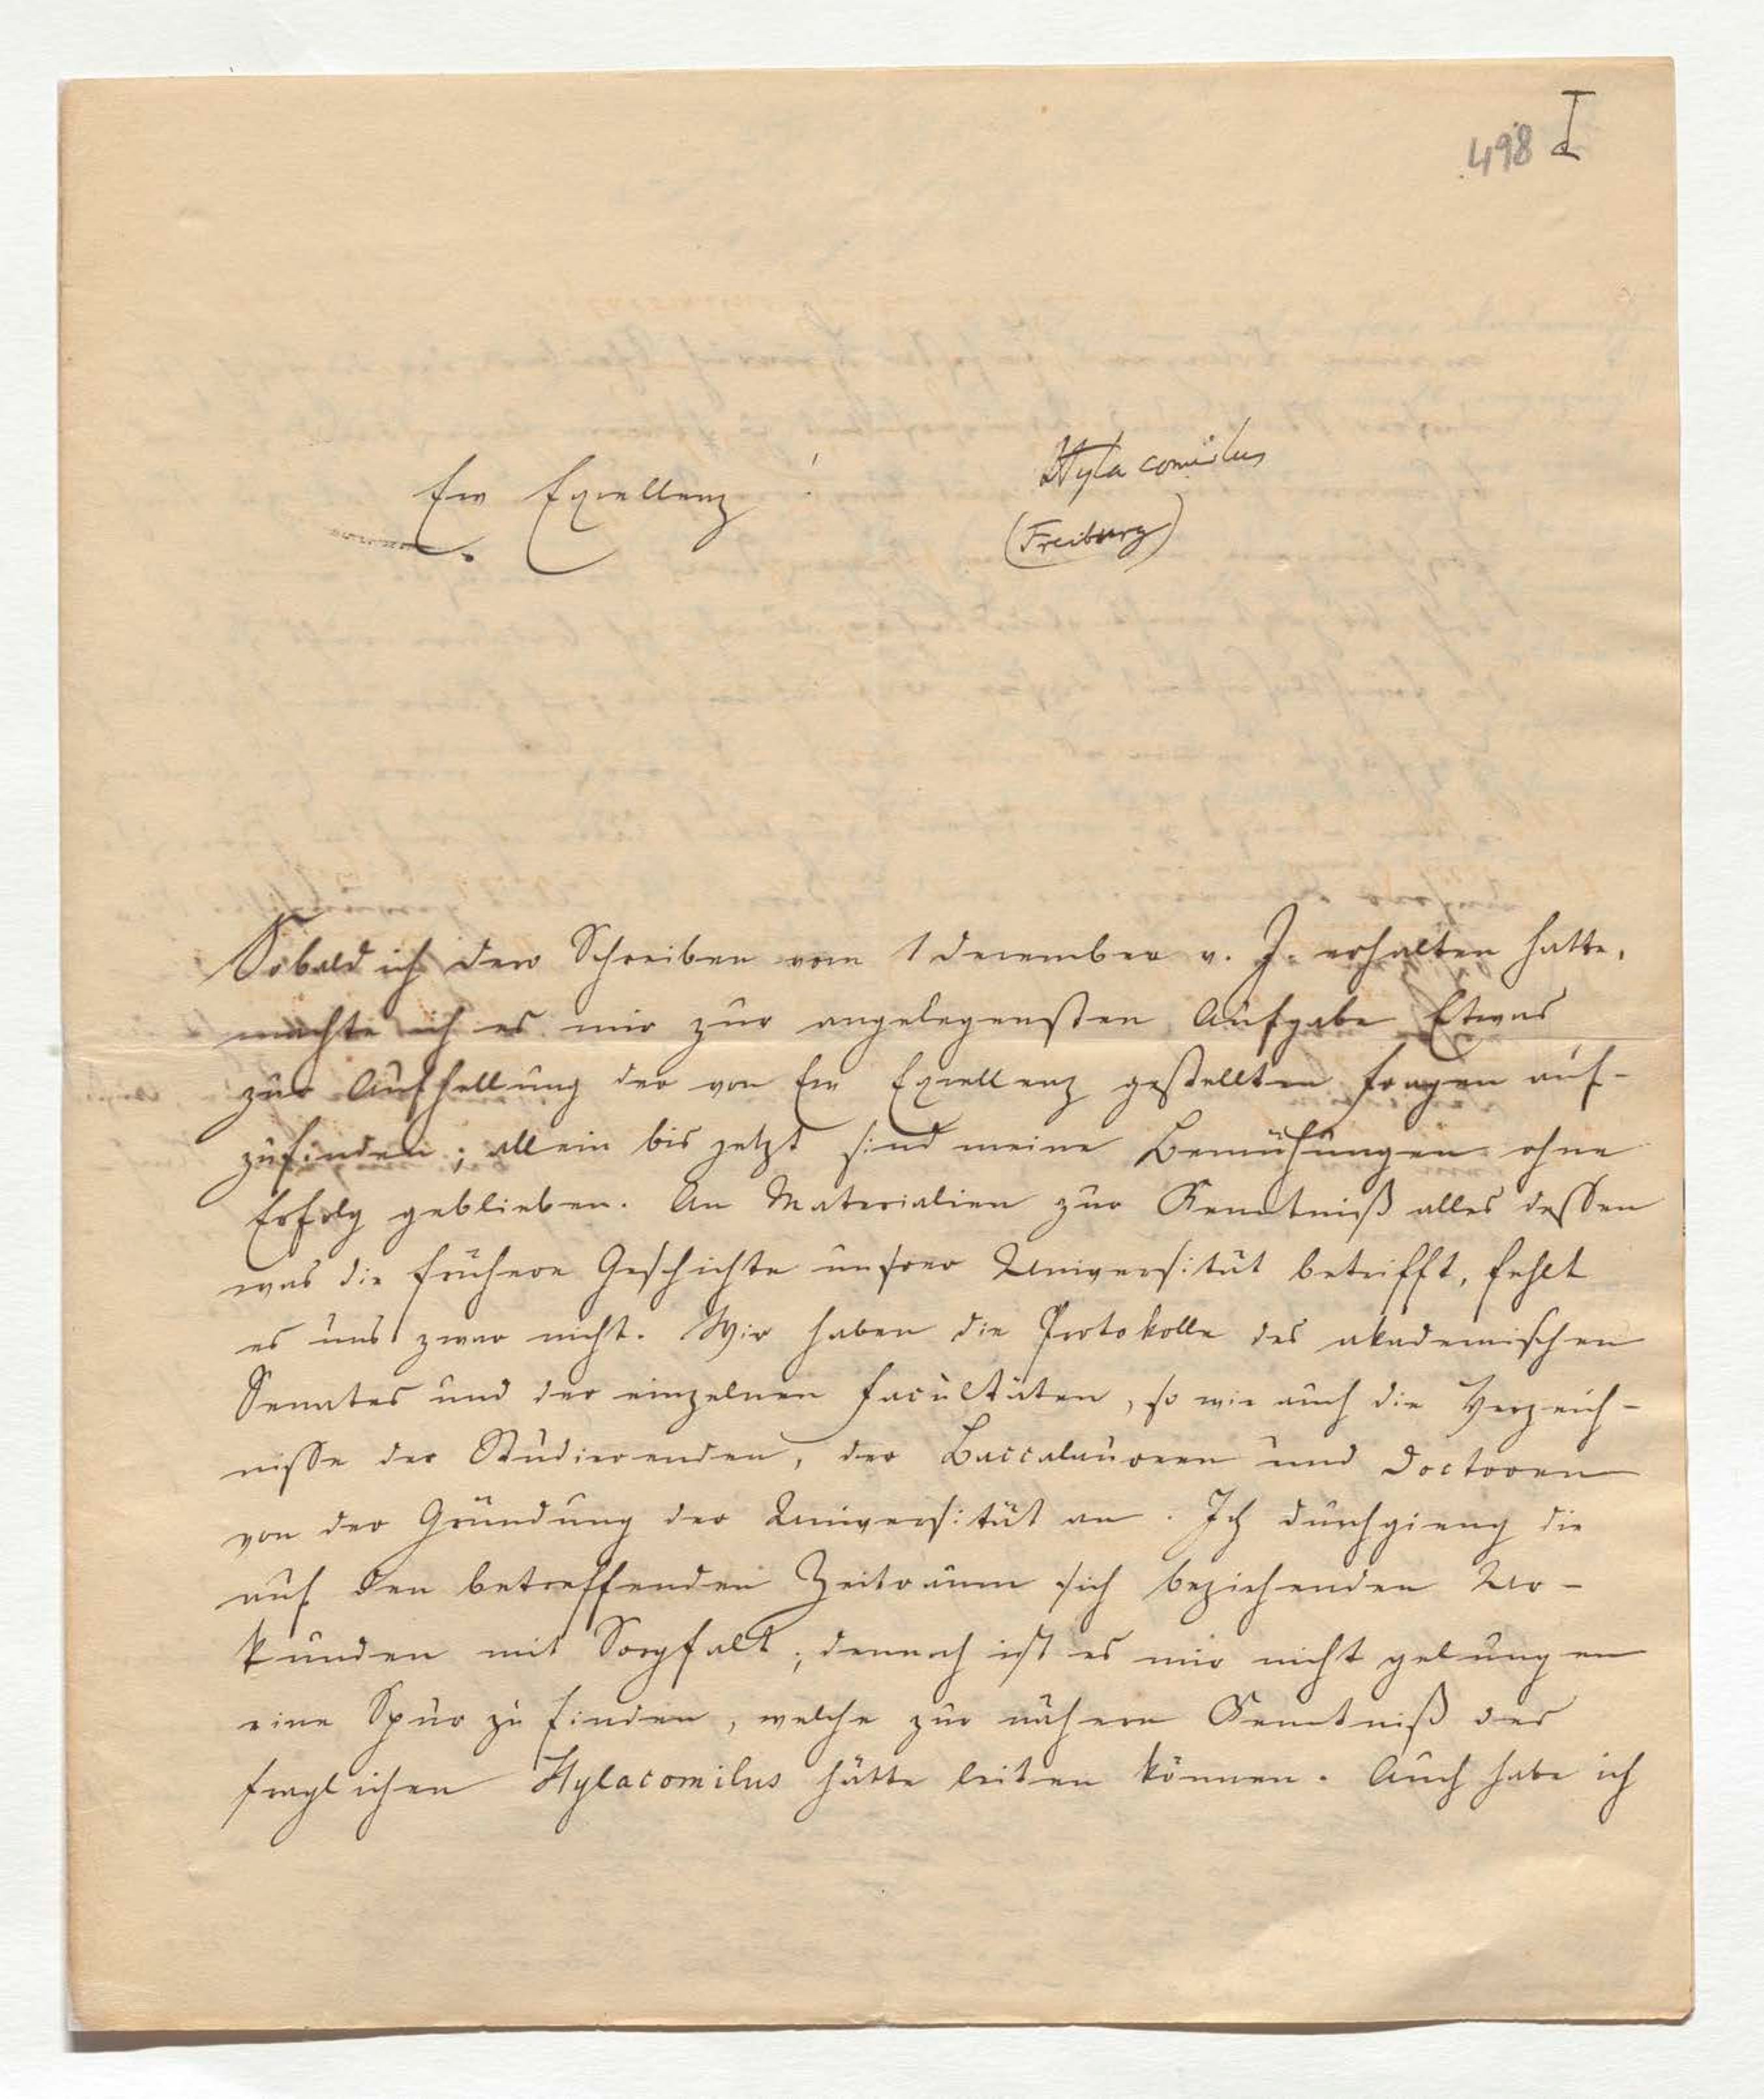 498 I
Hylacomilus
Ew Excellenz!
(Freiburg)
Sobald ich Dero Schreiben vom 1 December v. J. erhalten hatte,
machte ich es mir zur angelegensten Aufgabe Etwas
zur Aufhellung der von Ew Excellenz gestellten Fragen auf-
zufinden; allein bis jetzt sind meine Bemühungen ohne
Erfolg geblieben. An Materialien zur Kenntniß alles dessen
was die frühere Geschichte unsrer Universität betrifft, fehlt
es uns zwar nicht. Wir haben die Protokolle des akademischen
Senates und der einzelnen Facultäten, so wie auch die Verzeich-
nisse der Studierenden, der Baccalaureen und Doctoren
von der Gründung der Universität an. Ich durchgieng die
auf den betreffenden Zeitraum sich beziehenden Ur-
kunden mit Sorgfalt; dennoch ist es mir nicht gelungen
eine Spur zu finden, welche zur nähern Kenntniß des
fraglichen Hylacomilus hätte leiten können. Auch habe ich